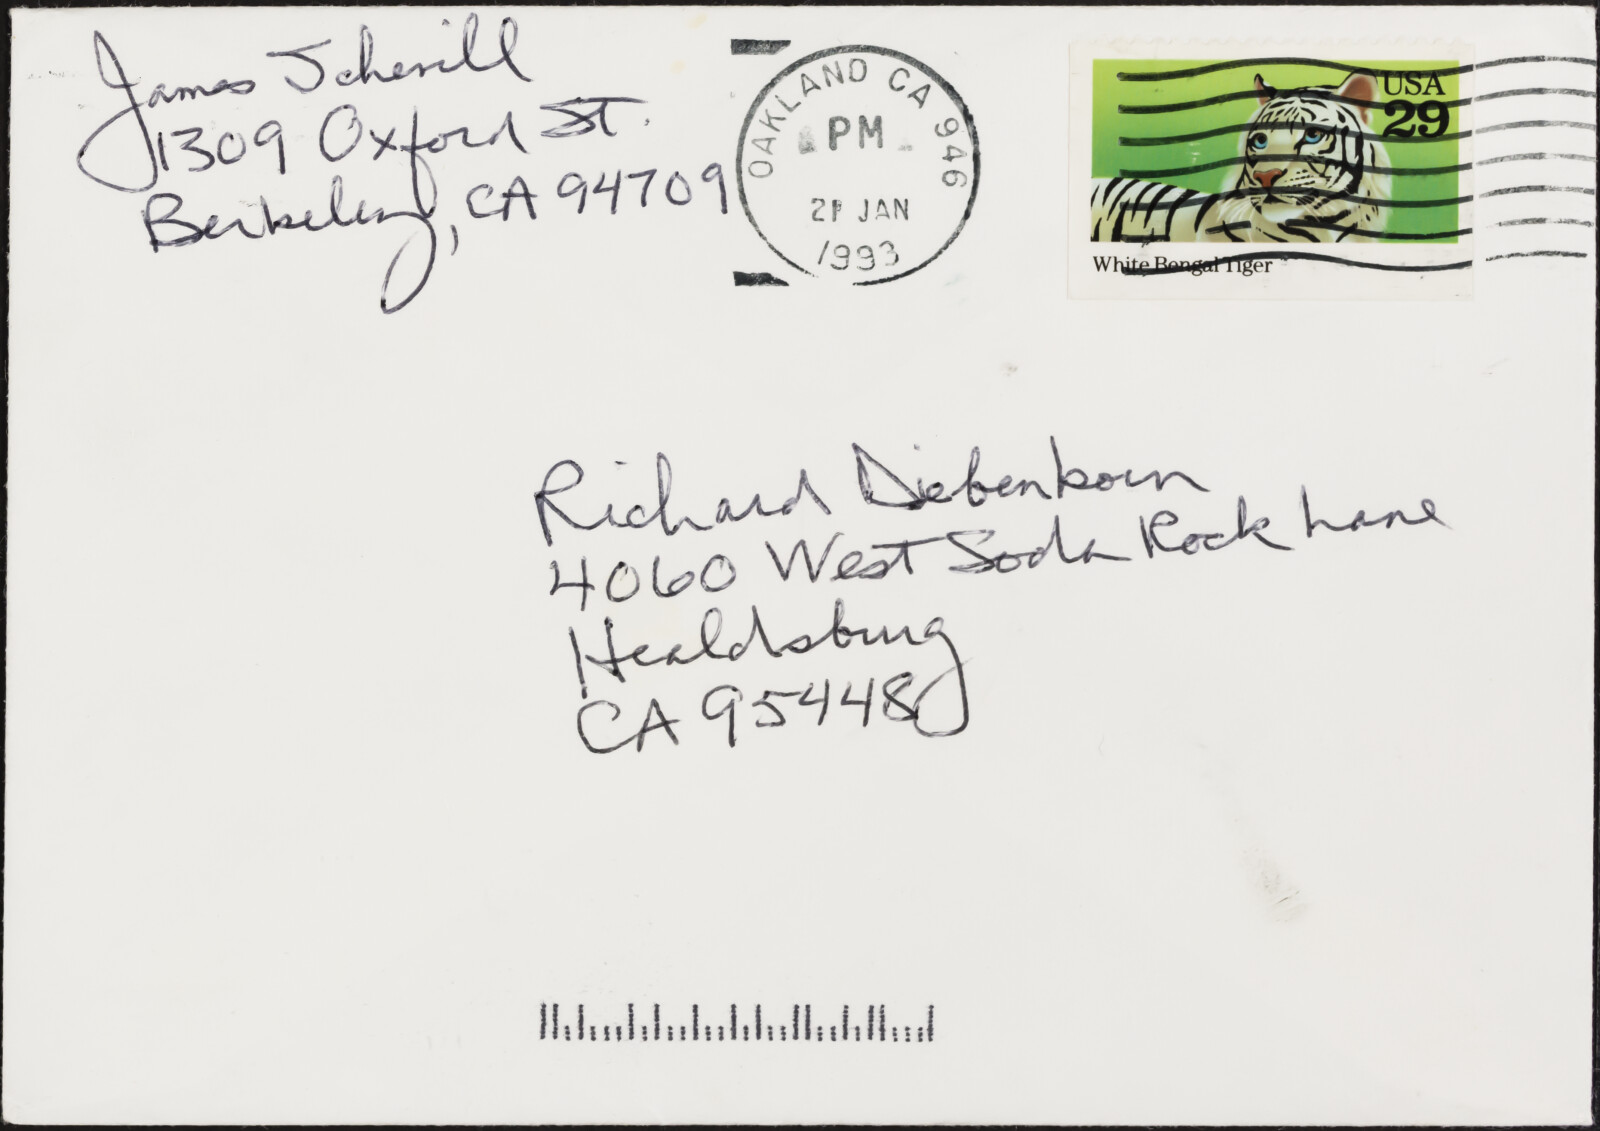 James Schevill
1309 Oxford St.
Berkeley, CA 94709
OAKLAND CA 946
PM
21 JAN
1993
USA
29
White Bengal Tiger
Richard Diebenkorn
4060 West Soda Rock Lane
Healdsburg
CA 95448